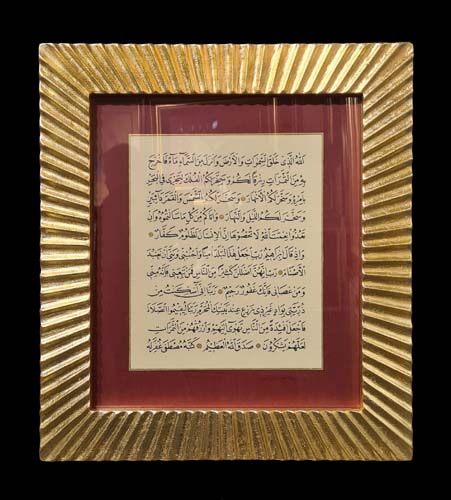 الله الذى خلق السموات والارض وانزل من السماء ماء فاخرج
به من الثمرات رزقا لكم وسخر لكم الفلك لتجرى فى البحر
بامره وسخر لكم الانهار وسخر لكم الشمس والقمر دائبين
وسخر لكم الليل والنهار واتيكم من كل ما سالتموه وان
تعدوا نعمت الله لا تحصوها ان الانسان لظلوم كفار
واذ قال ابرهيم رب اجعل هذا البلد امنا واجنبنى وبنى ان نعبد
الاصنام رب انهن اضللن كثيرا من الناس فمن تبعنى فانه منى
ومن عصانى فانك غفور رحيم ربنا انى اسكنت من
ذريتى بواد غير ذى زرع عند بيتك المحرم ربنا ليقيموا الصلاة
فاجعل افئدة من الناس تهوى اليهم وارزقهم من الثمرات
لعلهم يشكرون صدق الله العظيم كتبه مصطفى غفر له